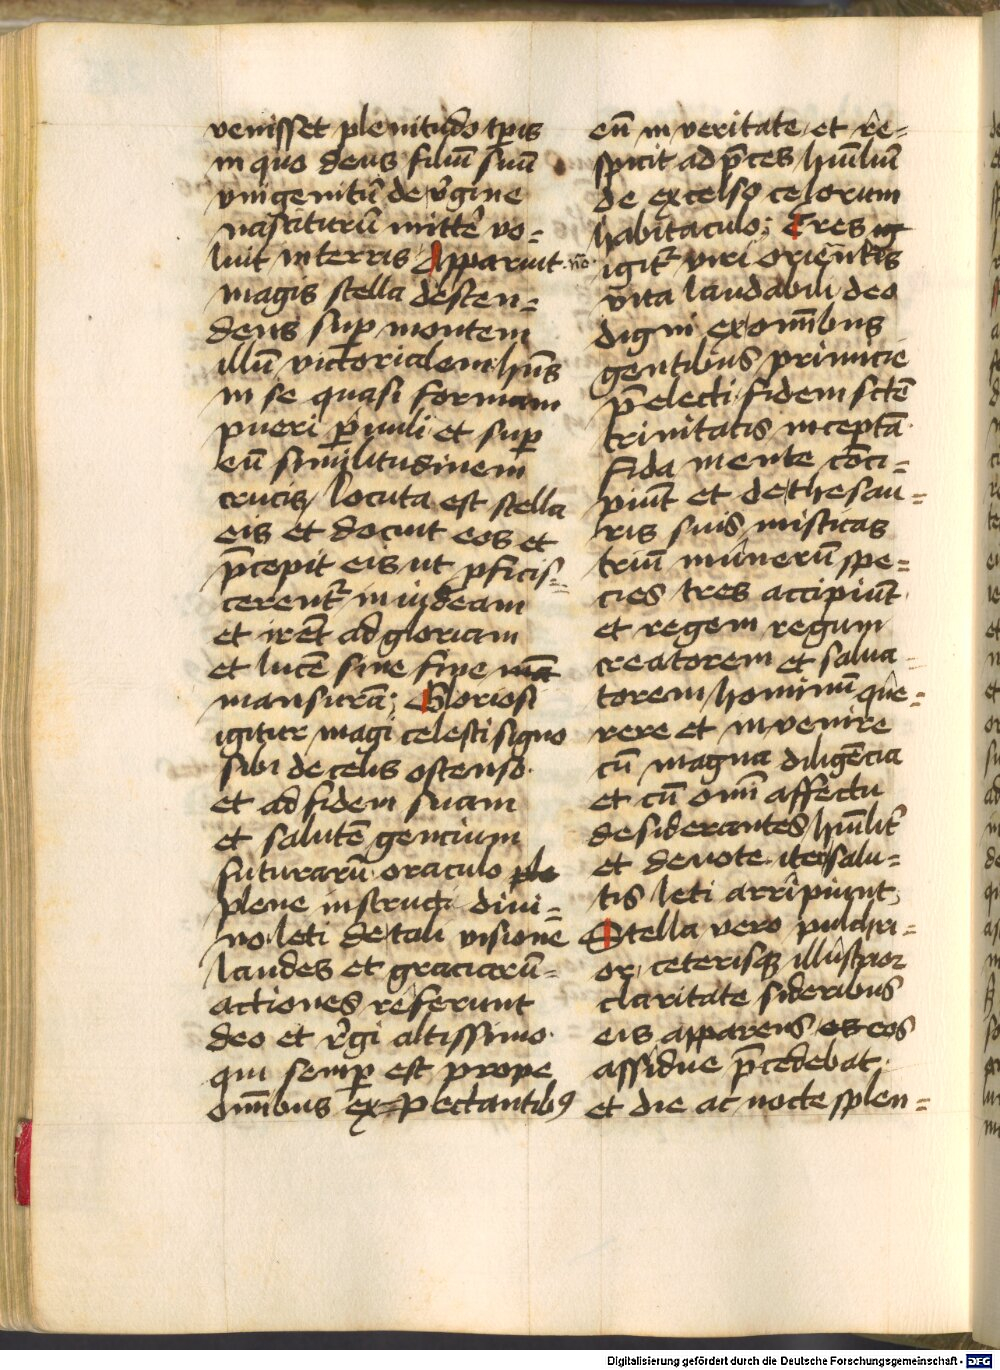 venisset plenitudo tp̄is
in quo deus filiū suū
vnigenitū de v̾gine
nasciturū mittē vo=
luit in terris Apparuit no
magis stella descen=
dens sup̱ montem
illū victorialem hn̄s
in se quasi formam
pueri p̱uuli et sup̱
eū similitudinem
crucis locuta est stella
eis et docuit eos et
p̄cepit eis ut ꝓficis=
cerent᷑ in iudeam
et irēt ad gloriam
et lucē sine fine
mansurā; Gloriosi
igitur magi celesti signo
sibi de celis ostenso
et ad fidem suam
et salutē gencium
futurarū oraculo ple
plene instructi diui=
no leti de tali visione
laudes et graciarū=
actiones referunt
deo et v̾gi altissimo
qui semp̱ est prope
om̄ibus ex=pectantibꝰ
eū in veritate et re=
spicit ad p̄ces hūiliū
de excelso celorum
habitaculo; Tres ig
igit᷑ viri orientis
vita laudabili deo
digni ex om̄ibus
gentibus primicie
p̄electi fidem scte
trinitatis inceptā
fida mente conci=
piūt et de thesau=
ris suis misticas
triū munerū spe=
cies tres accipiūt
et regem regum
creatorem et salua-
torem hominū que=
rere et invenire
cū magna diligēcia
et cū omī affectu
desiderantes hūilit᷑
et deuote iter salu=
tis leti arripiunt
Stella vero pulchri=
or ceterisqꝫ illustrior
claritate sideribus
eis apparens os eos
assidue p̄cedebat
et die ac nocte splen=
Digitalisierung gefördert durch die Deutsche Forschungsgemeinschaft - DFG